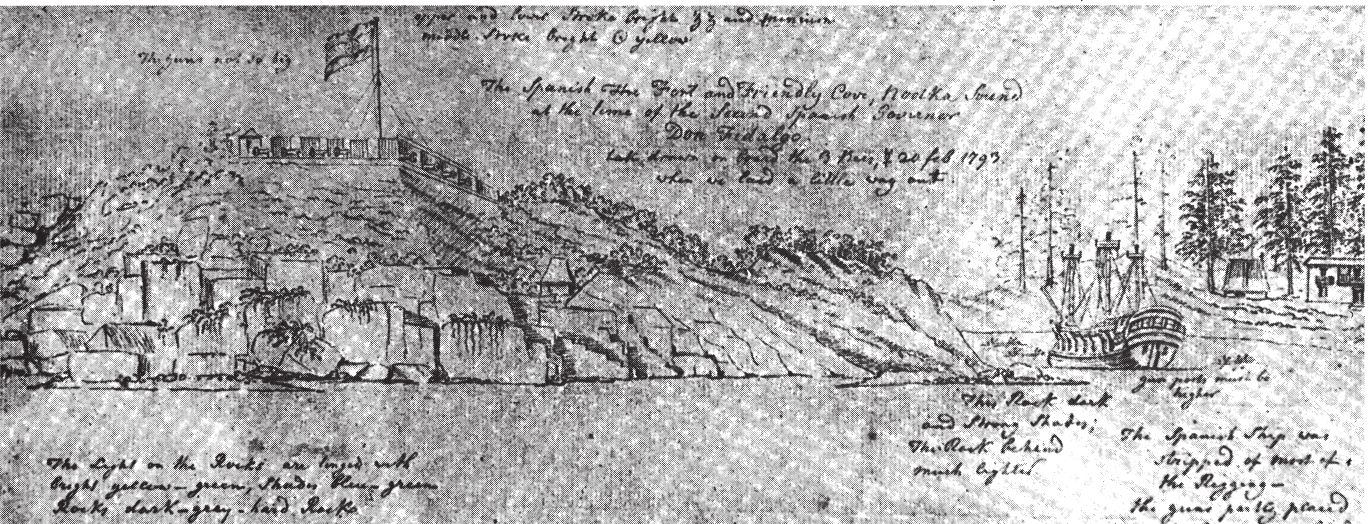 upper and lower Stroke bright and minium
middle Stroke bright yellow
The guns not so big
The Spanish Fort and Friendly Cove, Nootka Sound
at the time of the Second Spanish Governor
Don Fidalgo
taken on board the 3 B 20 feb 1793
when we laid a little way out
gun ports must be
higher
This Rock dark
and Strong Shades;
The Rock behind
much lighter
The Spanish Ship was
stripped of most of
the Rigging -
the guns partly placed
The Light on the Rocks are tinged with
bright yellow - green, Shades blue - green
Rocks dark - grey - hard Rocks